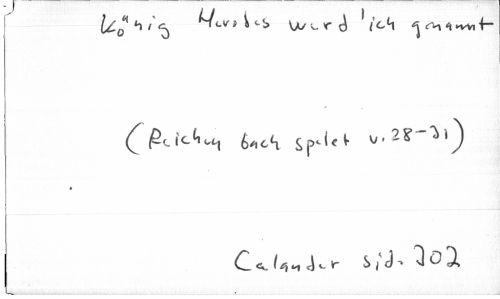 König Herodes werd' ich genannt
(Reichenbach spelet v. 28-31)
Calander sid. 302